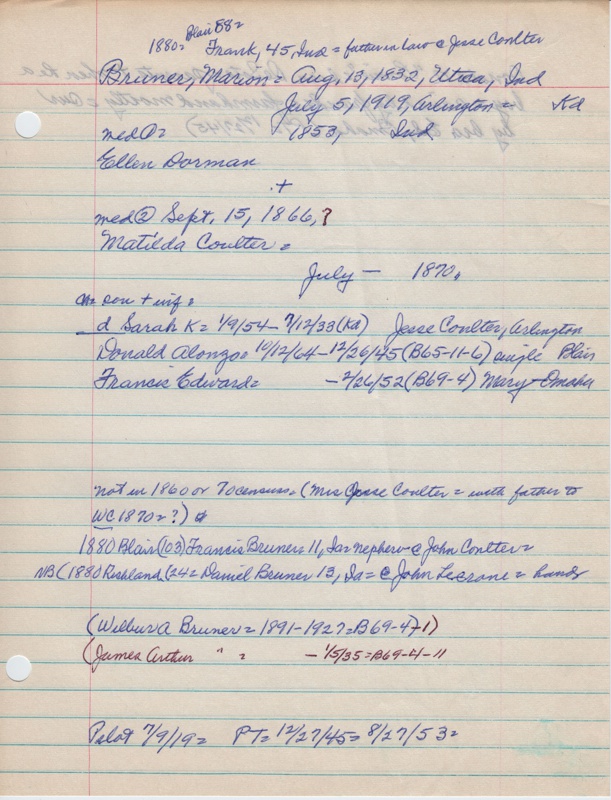 Blair 88=
1880= Frank, 45, Ind = father in law @ Jesse Coulter
Bruner, Marion = Aug, 13, 1832, Utica, Ind
July 5, 1919, Arlington = Kd
med ①= 1853, Ind
Ellen Dorman
+
med ② Sept, 15, 1866, ?
Matilda Coulter =
July — 1870,
ch = son + wif =
d Sarah K = 1/9/54 – 7/12/33 (Kd) Jesse Coulter, Arlington
Donald Alonzo = 10/12/64 – 12/26/45 (B65-11-6) single Blair
Francis Edward = – 2/26/52 (B69-4) Mary – Omaha
not in 1860 or 70 census = (Mrs Jesse Coulter = with father to
WC 1870 = ?)
1880 Blair (103) Francis Bruner = 11, Ia = nephew @ John Coulter =
NB (1880 Richland (24 = Daniel Bruner 13, Ia = @ John Lecrone = hands
(Wilbur A Bruner = 1891-1927 = B69-4)-1)
(James Arthur " = – 1/5/35 = B69-4-11
Pilot 7/9/19 = PT = 12/27/45 = 8/27/53 =